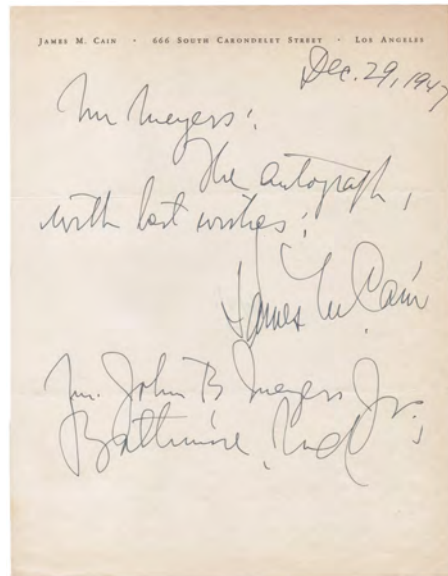 James M. Cain · 666 South Carondelet Street · Los Angeles
Dec. 29, 1947
Mr Meyers:
The autograph,
with best wishes:
James M. Cain
Mr. John B Meyers Jr.,
Baltimore, Md